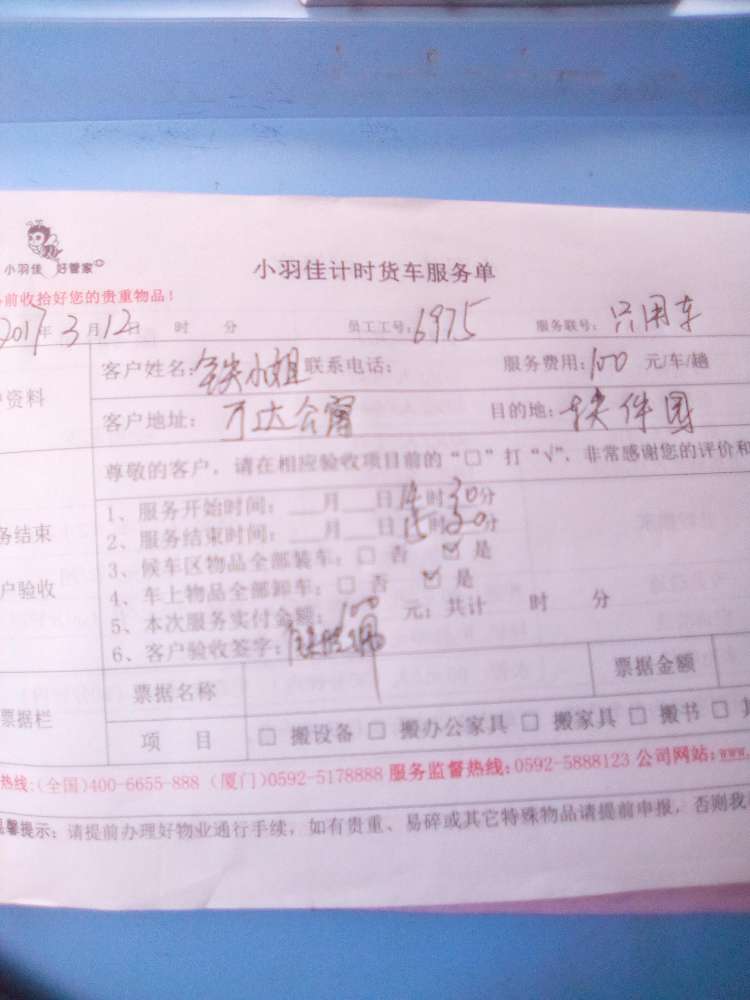 小羽佳 好管家
小羽佳计时货车服务单
前收拾好您的贵重物品!
2017年3月12日 时 分 员工工号:6975 服务联号:只用车
资料
客户姓名:铁小姐 联系电话: 服务费用:100 元/车/趟
客户地址: 目的地:
尊敬的客户,请在相应验收项目前的“口”打“√”,非常感谢您的评价和
务结束
户验收
1、服务开始时间: 月 日14时30分
2、服务结束时间: 月 日15时30分
3、候车区物品全部装车:□ 否 ☑ 是
4、车上物品全部卸车:□ 否 ☑ 是
5、本次服务实付金额:100 元;共计 时 分
6、客户验收签字:
票据栏
票据名称 票据金额
项 目 □ 搬设备 □ 搬办公家具 □ 搬家具 □ 搬书 □
热线:(全国)400-6655-888 (厦门)0592-5178888 服务监督热线:0592-5888123 公司网站:www.
温馨提示:请提前办理好物业通行手续,如有贵重、易碎或其它特殊物品请提前申报,否则我